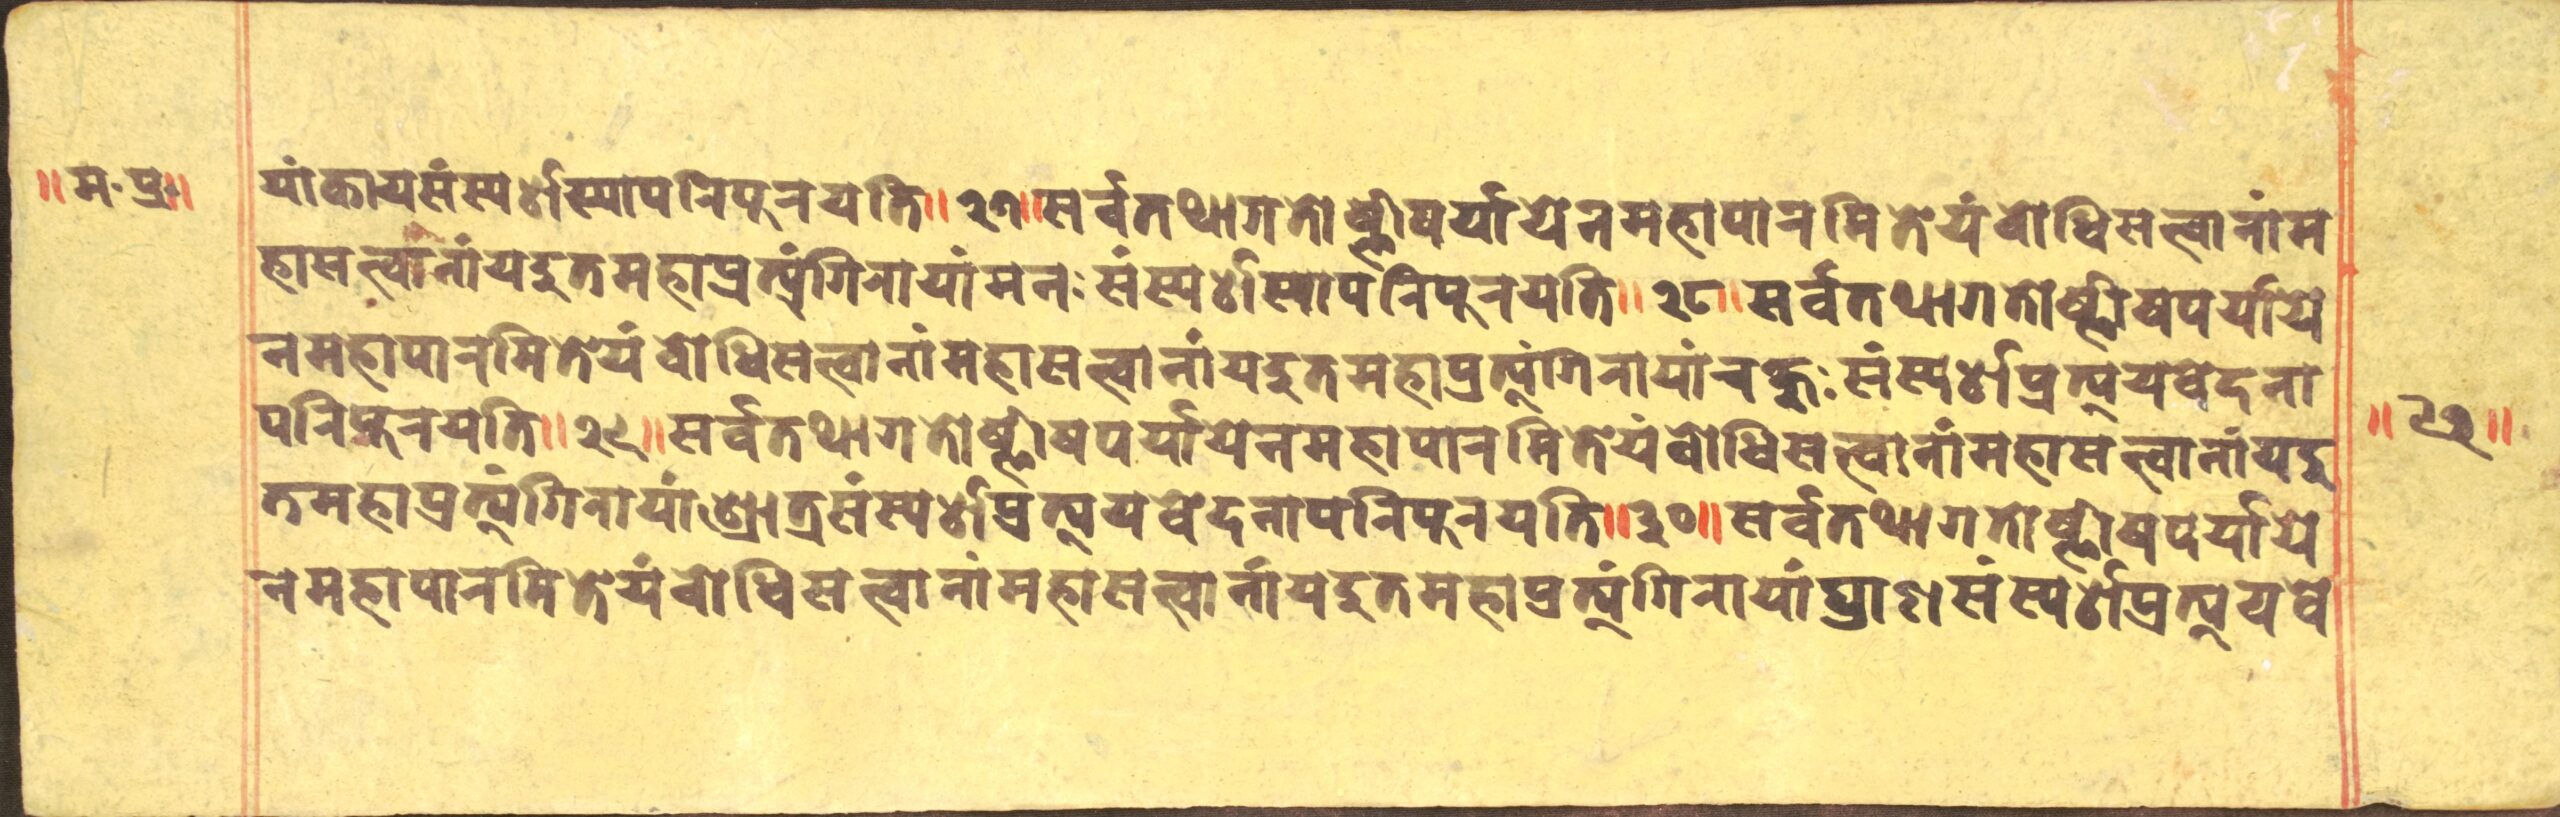 ॥म· प्र॥
यांकायसंस्पर्शस्यापरिपूरयति॥२७॥सर्वतथागतोष्णीषर्यायेनमहापारमितेयंबोधिसत्त्वानांम
हासत्त्वानांयदुतमहाप्रत्यंगिरायांमनःसंस्पर्शस्यापरिपूरयति॥२८॥सर्वतथागतोष्णीषपर्याये
नमहापारमितेयंबोधिसत्त्वानांमहासत्त्वानांयदुतमहाप्रत्यंगिरायांचक्षुःसंस्पर्शप्रत्ययवेदना
परिपूरयति॥२९॥सर्वतथागतोष्णीषपर्यायेनमहापारमितेयंबोधिसत्त्वानांमहासत्त्वानांयदु
तमहाप्रत्यंगिरायांश्रात्रसंस्पर्शप्रत्ययवेदनापरिपूरयति॥३०॥सर्वतथागतोष्णीषपर्याये
नमहापारमितेयंबोधिसत्त्वानांमहासत्त्वानांयदुतमहाप्रत्यंगिरायांघ्राणसंस्पर्शप्रत्ययवे